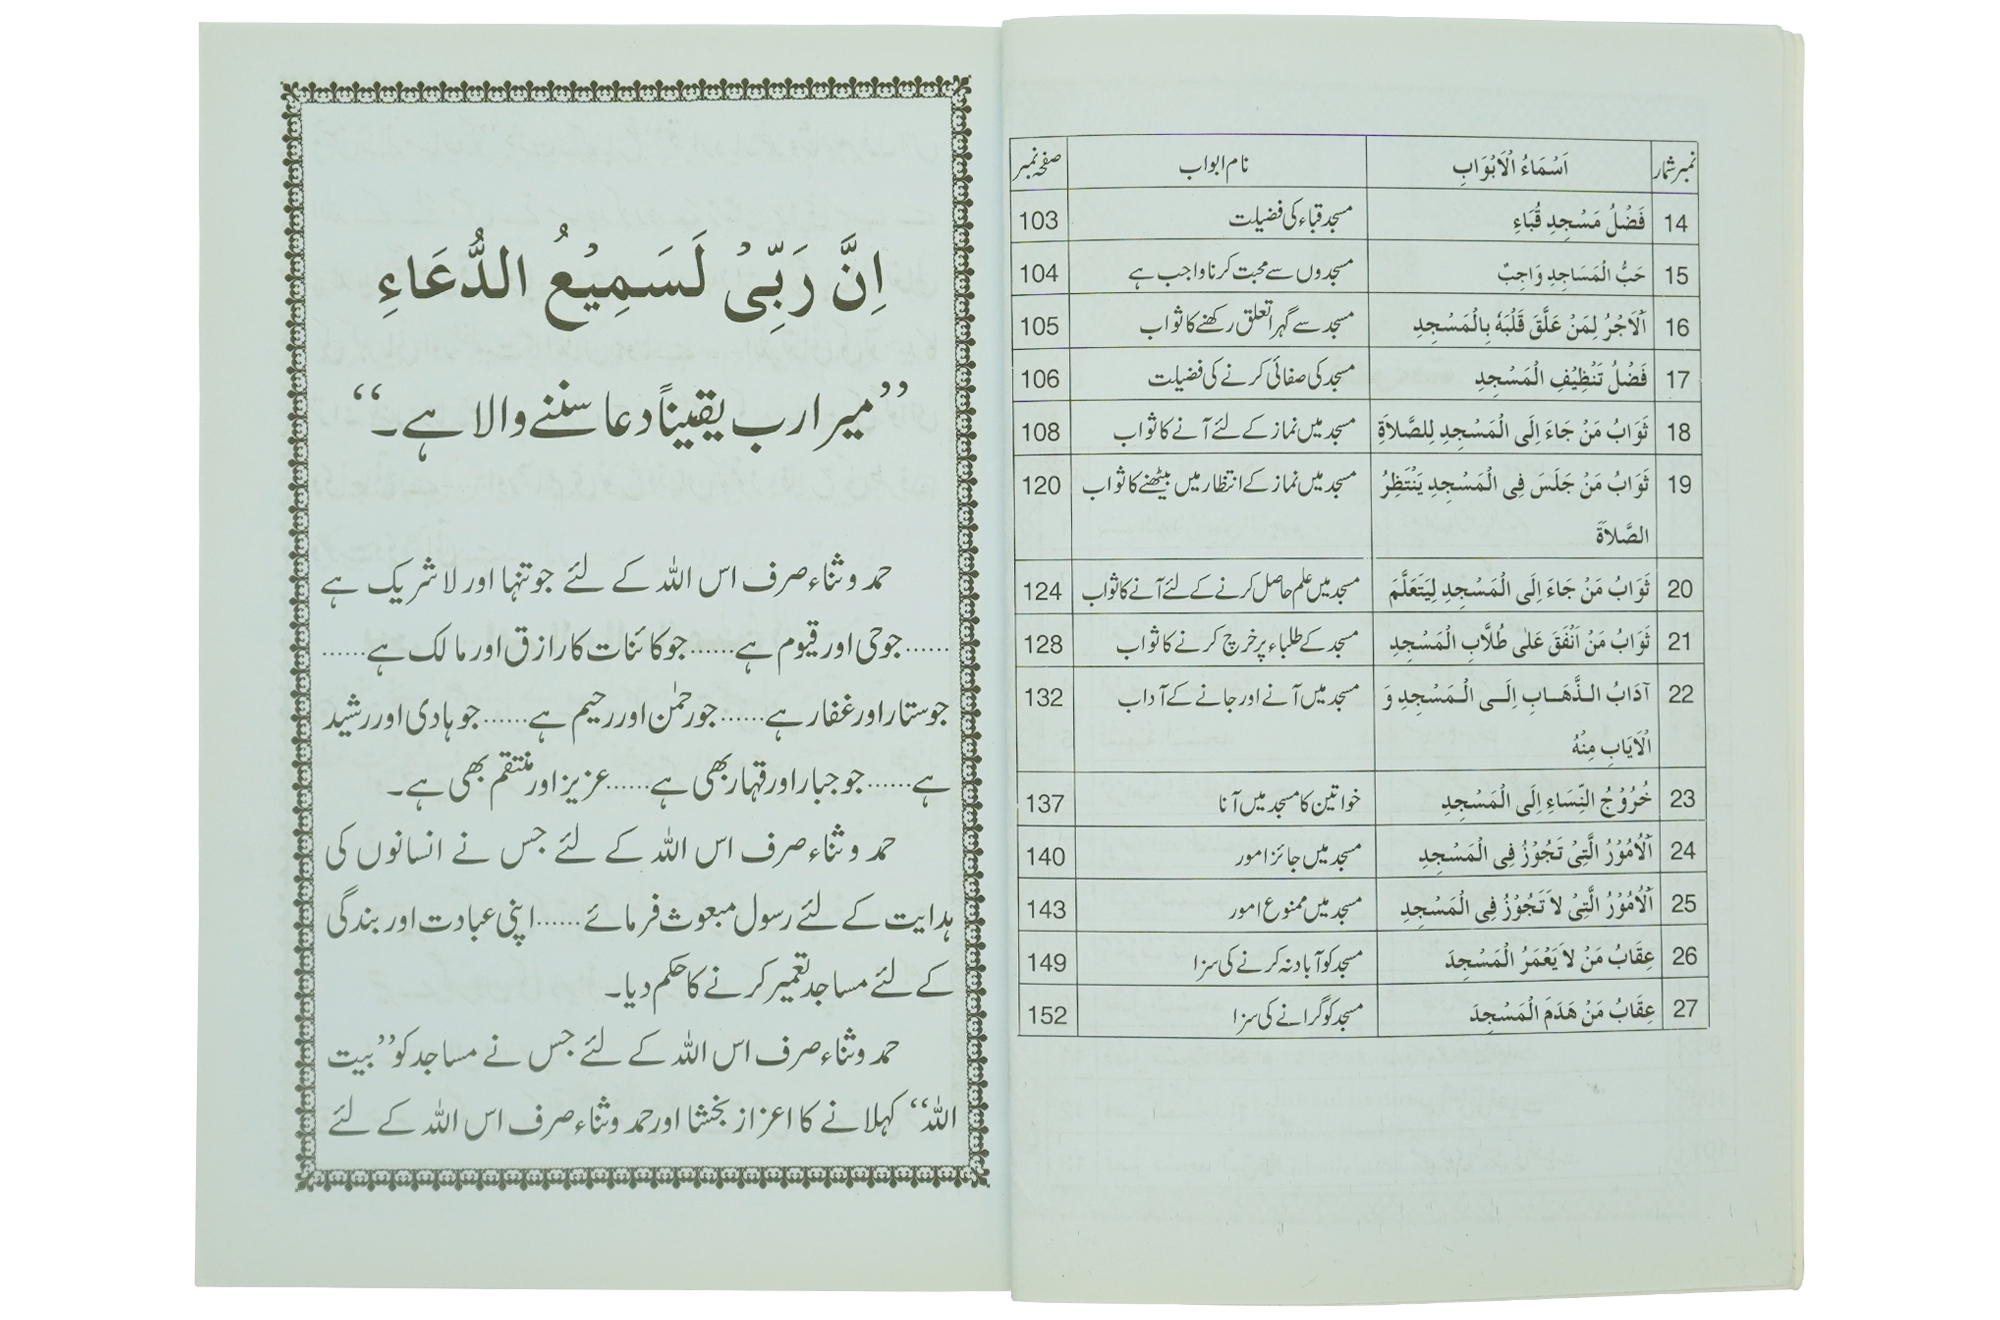 نمبر شمار اَسْمَاءُ الْاَبْوَابِ نام ابواب صفحہ نمبر
14 فَضْلُ مَسْجِدِ قُبَاءِ مسجد قباء کی فضیلت 103
15 حَبُّ الْمَسَاجِدِ وَاجِبٌ مسجدوں سے محبت کرنا واجب ہے 104
16 اَلْاَجْرُ لِمَنْ عَلَّقَ قَلْبَهٗ بِالْمَسْجِدِ مسجد سے گہرا تعلق رکھنے کا ثواب 105
17 فَضْلُ تَنْظِيْفِ الْمَسْجِدِ مسجد کی صفائی کرنے کی فضیلت 106
18 ثَوَابُ مَنْ جَاءَ اِلَى الْمَسْجِدِ لِلصَّلاَةِ مسجد میں نماز کے لئے آنے کا ثواب 108
19 ثَوَابُ مَنْ جَلَسَ فِى الْمَسْجِدِ يَنْتَظِرُ مسجد میں نماز کے انتظار میں بیٹھنے کا ثواب 120
الصَّلاَةَ
20 ثَوَابُ مَنْ جَاءَ اِلَى الْمَسْجِدِ لِيَتَعَلَّمَ مسجد میں علم حاصل کرنے کے لئے آنے کا ثواب 124
21 ثَوَابُ مَنْ اَنْفَقَ عَلٰى طُلَّابِ الْمَسْجِدِ مسجد کے طلباء پر خرچ کرنے کا ثواب 128
22 آدَابُ الذَّهَابِ اِلَى الْمَسْجِدِ وَ مسجد میں آنے اور جانے کے آداب 132
الْاَيَابِ مِنْهُ
23 خُرُوْجُ النِّسَاءِ اِلَى الْمَسْجِدِ خواتین کا مسجد میں آنا 137
24 اَلْاُمُوْرُ الَّتِىْ تَجُوْزُ فِى الْمَسْجِدِ مسجد میں جائز امور 140
25 اَلْاُمُوْرُ الَّتِىْ لاَ تَجُوْزُ فِى الْمَسْجِدِ مسجد میں ممنوع امور 143
26 عِقَابُ مَنْ لاَ يَعْمَرُ الْمَسْجِدَ مسجد کو آباد نہ کرنے کی سزا 149
27 عِقَابُ مَنْ هَدَمَ الْمَسْجِدَ مسجد کو گرانے کی سزا 152
اِنَّ رَبِّىْ لَسَمِيْعُ الدُّعَاءِ
’’میرا رب یقیناً دعا سننے والا ہے۔‘‘
حمد و ثناء صرف اس اللہ کے لئے جو تنہا اور لا شریک ہے
......جو حی اور قیوم ہے......جو کائنات کا رازق اور مالک ہے......
جو ستار اور غفار ہے......جو رحمٰن اور رحیم ہے......جو ہادی اور رشید
ہے......جو جبار اور قہار بھی ہے......عزیز اور منتقم بھی ہے۔
حمد و ثناء صرف اس اللہ کے لئے جس نے انسانوں کی
ہدایت کے لئے رسول مبعوث فرمائے......اپنی عبادت اور بندگی
کے لئے مساجد تعمیر کرنے کا حکم دیا۔
حمد و ثناء صرف اس اللہ کے لئے جس نے مساجد کو ’’بیت
اللہ‘‘ کہلانے کا اعزاز بخشا اور حمد و ثناء صرف اس اللہ کے لئے